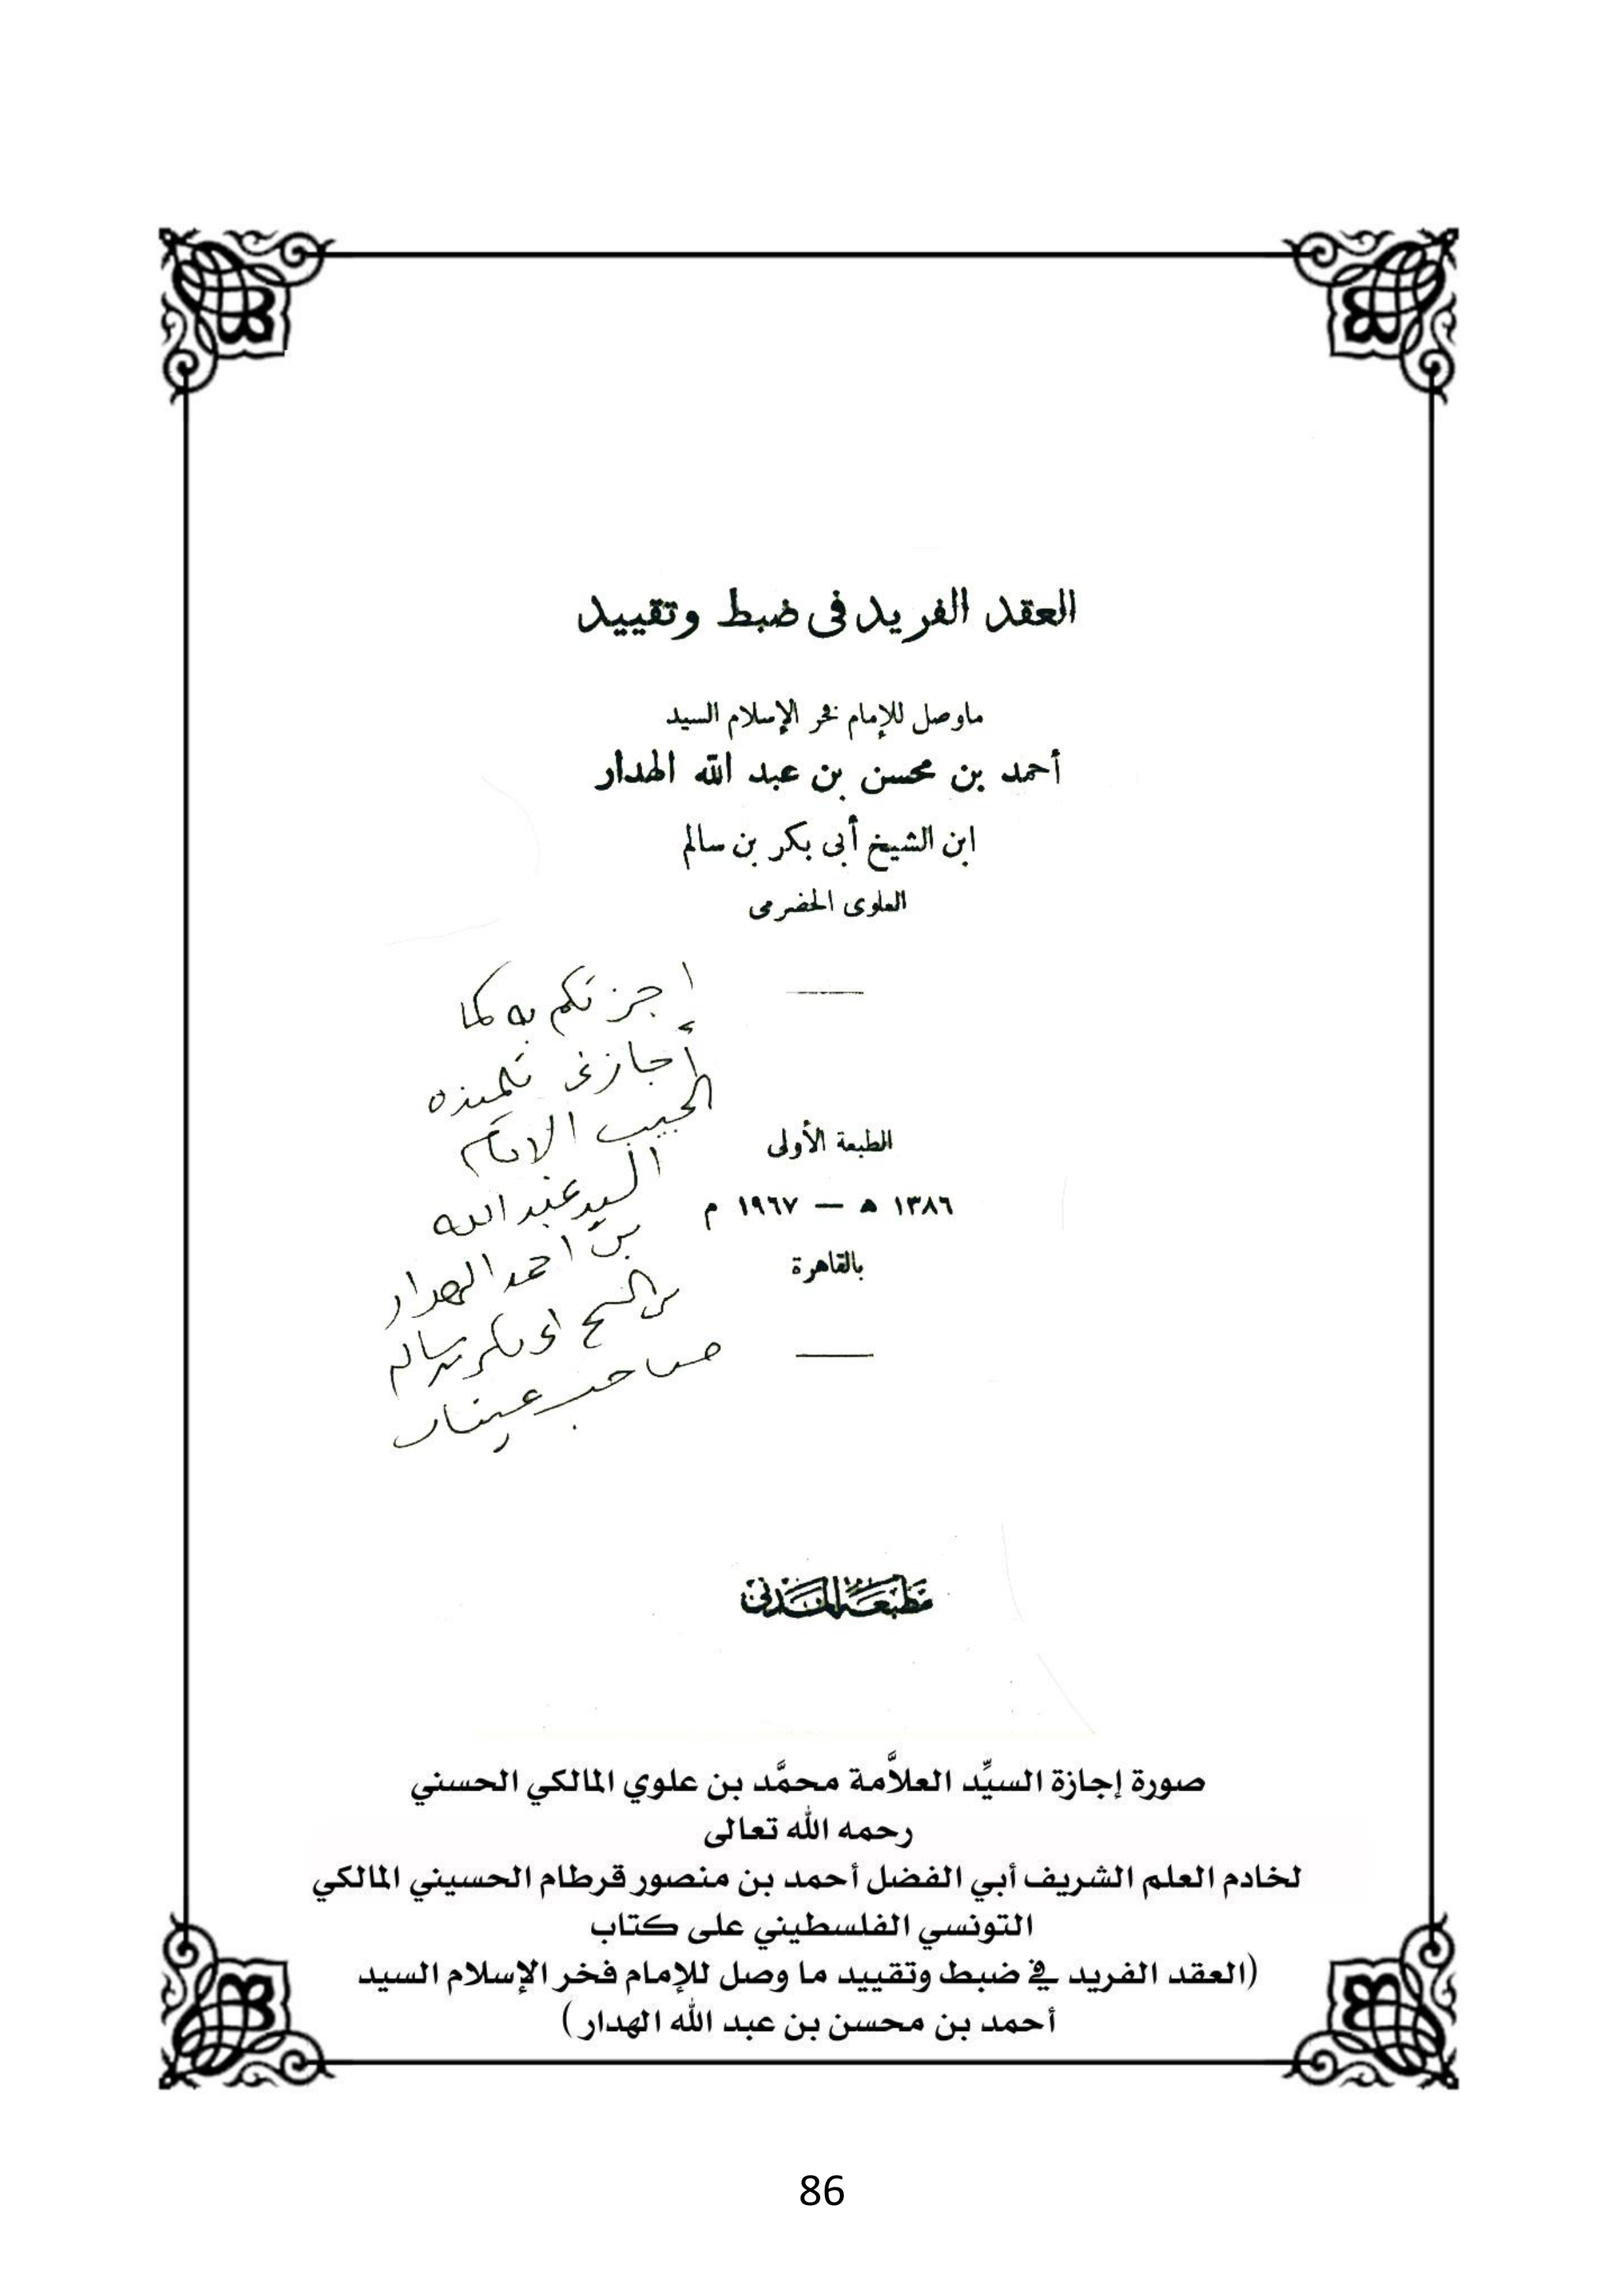 العقد الفريد فى ضبط وتقييد
ماوصل للإمام فخر الإسلام السيد
أحمد بن محسن بن عبد الله الهدار
ابن الشيخ أبى بكر بن سالم
العلوى الحضرمى
اجزتكم به كما
أجازنى تلميذه
الحبيب الامام
السيد عبد الله
بن احمد الهدار
بن الشيخ ابى بكر بن سالم
صاحب عينات
الطبعة الأولى
١٣٨٦ ه — ١٩٦٧ م
بالقاهرة
مطبعة المدنى
صورة إجازة السيِّد العلاَّمة محمَّد بن علوي المالكي الحسني
رحمه الله تعالى
لخادم العلم الشريف أبي الفضل أحمد بن منصور قرطام الحسيني المالكي
التونسي الفلسطيني على كتاب
(العقد الفريد في ضبط وتقييد ما وصل للإمام فخر الإسلام السيد
أحمد بن محسن بن عبد الله الهدار)
86